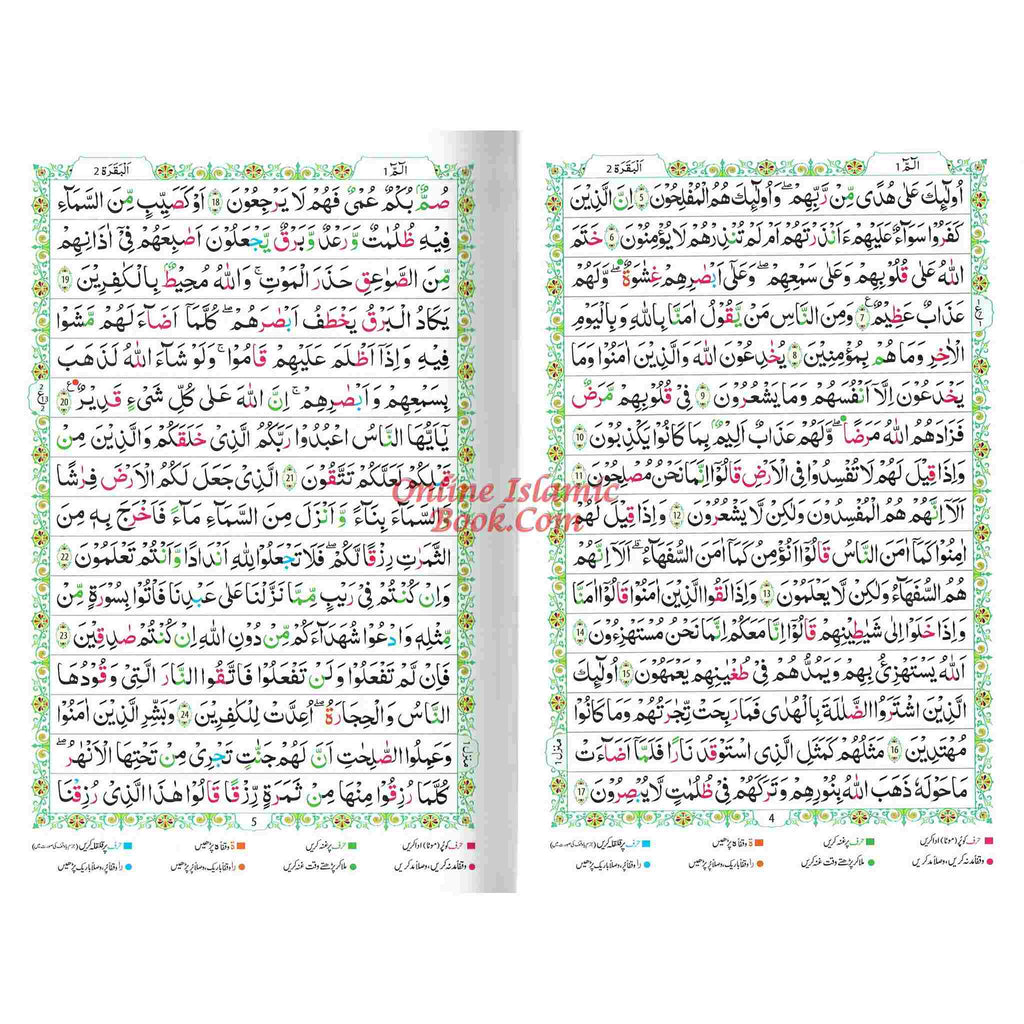 الٓمّٓ ١
اَلْبَقَرَة ٢
اُولٰٓئِكَ عَلٰى هُدًى مِّنْ رَّبِّهِمْ ۖ وَاُولٰٓئِكَ هُمُ الْمُفْلِحُوْنَ 5 اِنَّ الَّذِيْنَ
كَفَرُوْا سَوَآءٌ عَلَيْهِمْ ءَاَنْذَرْتَهُمْ اَمْ لَمْ تُنْذِرْهُمْ لَا يُؤْمِنُوْنَ 6 خَتَمَ
اللّٰهُ عَلٰى قُلُوْبِهِمْ وَعَلٰى سَمْعِهِمْ ۖ وَعَلٰٓى اَبْصَارِهِمْ غِشَاوَةٌ ۖ وَّلَهُمْ
عَذَابٌ عَظِيْمٌ 7 وَمِنَ النَّاسِ مَنْ يَّقُوْلُ اٰمَنَّا بِاللّٰهِ وَبِالْيَوْمِ
الْاٰخِرِ وَمَا هُمْ بِمُؤْمِنِيْنَ 8 يُخٰدِعُوْنَ اللّٰهَ وَالَّذِيْنَ اٰمَنُوْا وَمَا
يَخْدَعُوْنَ اِلَّآ اَنْفُسَهُمْ وَمَا يَشْعُرُوْنَ 9 فِيْ قُلُوْبِهِمْ مَّرَضٌ
فَزَادَهُمُ اللّٰهُ مَرَضًا ۖ وَلَهُمْ عَذَابٌ اَلِيْمٌ بِمَا كَانُوْا يَكْذِبُوْنَ 10
وَاِذَا قِيْلَ لَهُمْ لَا تُفْسِدُوْا فِي الْاَرْضِ قَالُوْٓا اِنَّمَا نَحْنُ مُصْلِحُوْنَ 11
اَلَآ اِنَّهُمْ هُمُ الْمُفْسِدُوْنَ وَلٰكِنْ لَّا يَشْعُرُوْنَ 12 وَاِذَا قِيْلَ لَهُمْ
اٰمِنُوْا كَمَآ اٰمَنَ النَّاسُ قَالُوْٓا اَنُؤْمِنُ كَمَآ اٰمَنَ السُّفَهَآءُ ۗ اَلَآ اِنَّهُمْ
هُمُ السُّفَهَآءُ وَلٰكِنْ لَّا يَعْلَمُوْنَ 13 وَاِذَا لَقُوا الَّذِيْنَ اٰمَنُوْا قَالُوْٓا اٰمَنَّا
وَاِذَا خَلَوْا اِلٰى شَيٰطِيْنِهِمْ قَالُوْٓا اِنَّا مَعَكُمْ اِنَّمَا نَحْنُ مُسْتَهْزِءُوْنَ 14
اَللّٰهُ يَسْتَهْزِئُ بِهِمْ وَيَمُدُّهُمْ فِيْ طُغْيٰنِهِمْ يَعْمَهُوْنَ 15 اُولٰٓئِكَ
الَّذِيْنَ اشْتَرَوُا الضَّلٰلَةَ بِالْهُدٰى فَمَا رَبِحَتْ تِّجٰرَتُهُمْ وَمَا كَانُوْا
مُهْتَدِيْنَ 16 مَثَلُهُمْ كَمَثَلِ الَّذِي اسْتَوْقَدَ نَارًا فَلَمَّآ اَضَآءَتْ
مَا حَوْلَهٗ ذَهَبَ اللّٰهُ بِنُوْرِهِمْ وَتَرَكَهُمْ فِيْ ظُلُمٰتٍ لَّا يُبْصِرُوْنَ 17
منزل ١
4
حرف کو پُر (موٹا) ادا کریں
حرف پر غنہ کریں
ة وقفاً ہ پڑھیں
حرف پر قلقلہ کریں
وقفاً مد نہ کریں، وصلاً مد کریں
ملا کر پڑھتے وقت غنہ کریں
را وقفاً باریک، وصلاً پُر پڑھیں
را وقفاً پُر، وصلاً باریک پڑھیں
الٓمّٓ ١
اَلْبَقَرَة ٢
صُمٌّۢ بُكْمٌ عُمْيٌ فَهُمْ لَا يَرْجِعُوْنَ 18 اَوْ كَصَيِّبٍ مِّنَ السَّمَآءِ
فِيْهِ ظُلُمٰتٌ وَّرَعْدٌ وَّبَرْقٌ يَجْعَلُوْنَ اَصَابِعَهُمْ فِيْٓ اٰذَانِهِمْ
مِّنَ الصَّوَاعِقِ حَذَرَ الْمَوْتِ ۚ وَاللّٰهُ مُحِيْطٌۢ بِالْكٰفِرِيْنَ 19
يَكَادُ الْبَرْقُ يَخْطَفُ اَبْصَارَهُمْ ۖ كُلَّمَآ اَضَآءَ لَهُمْ مَّشَوْا
فِيْهِ وَاِذَآ اَظْلَمَ عَلَيْهِمْ قَامُوْا ۚ وَلَوْ شَآءَ اللّٰهُ لَذَهَبَ
بِسَمْعِهِمْ وَاَبْصَارِهِمْ ۚ اِنَّ اللّٰهَ عَلٰى كُلِّ شَيْءٍ قَدِيْرٌ 20
يٰٓاَيُّهَا النَّاسُ اعْبُدُوْا رَبَّكُمُ الَّذِيْ خَلَقَكُمْ وَالَّذِيْنَ مِنْ
قَبْلِكُمْ لَعَلَّكُمْ تَتَّقُوْنَ 21 الَّذِيْ جَعَلَ لَكُمُ الْاَرْضَ فِرَاشًا
وَّالسَّمَآءَ بِنَآءً وَّاَنْزَلَ مِنَ السَّمَآءِ مَآءً فَاَخْرَجَ بِهٖ مِنَ
الثَّمَرٰتِ رِزْقًا لَّكُمْ ۖ فَلَا تَجْعَلُوْا لِلّٰهِ اَنْدَادًا وَّاَنْتُمْ تَعْلَمُوْنَ 22
وَاِنْ كُنْتُمْ فِيْ رَيْبٍ مِّمَّا نَزَّلْنَا عَلٰى عَبْدِنَا فَاْتُوْا بِسُوْرَةٍ مِّنْ
مِّثْلِهٖ وَادْعُوْا شُهَدَآءَكُمْ مِّنْ دُوْنِ اللّٰهِ اِنْ كُنْتُمْ صٰدِقِيْنَ 23
فَاِنْ لَّمْ تَفْعَلُوْا وَلَنْ تَفْعَلُوْا فَاتَّقُوا النَّارَ الَّتِيْ وَقُوْدُهَا
النَّاسُ وَالْحِجَارَةُ ۖ اُعِدَّتْ لِلْكٰفِرِيْنَ 24 وَبَشِّرِ الَّذِيْنَ اٰمَنُوْا
وَعَمِلُوا الصّٰلِحٰتِ اَنَّ لَهُمْ جَنّٰتٍ تَجْرِيْ مِنْ تَحْتِهَا الْاَنْهٰرُ ۖ
كُلَّمَا رُزِقُوْا مِنْهَا مِنْ ثَمَرَةٍ رِّزْقًا قَالُوْا هٰذَا الَّذِيْ رُزِقْنَا
منزل ١
5
حرف کو پُر (موٹا) ادا کریں
حرف پر غنہ کریں
ة وقفاً ہ پڑھیں
حرف پر قلقلہ کریں
وقفاً مد نہ کریں، وصلاً مد کریں
ملا کر پڑھتے وقت غنہ کریں
را وقفاً باریک، وصلاً پُر پڑھیں
را وقفاً پُر، وصلاً باریک پڑھیں
Online Islamic
Book.Com